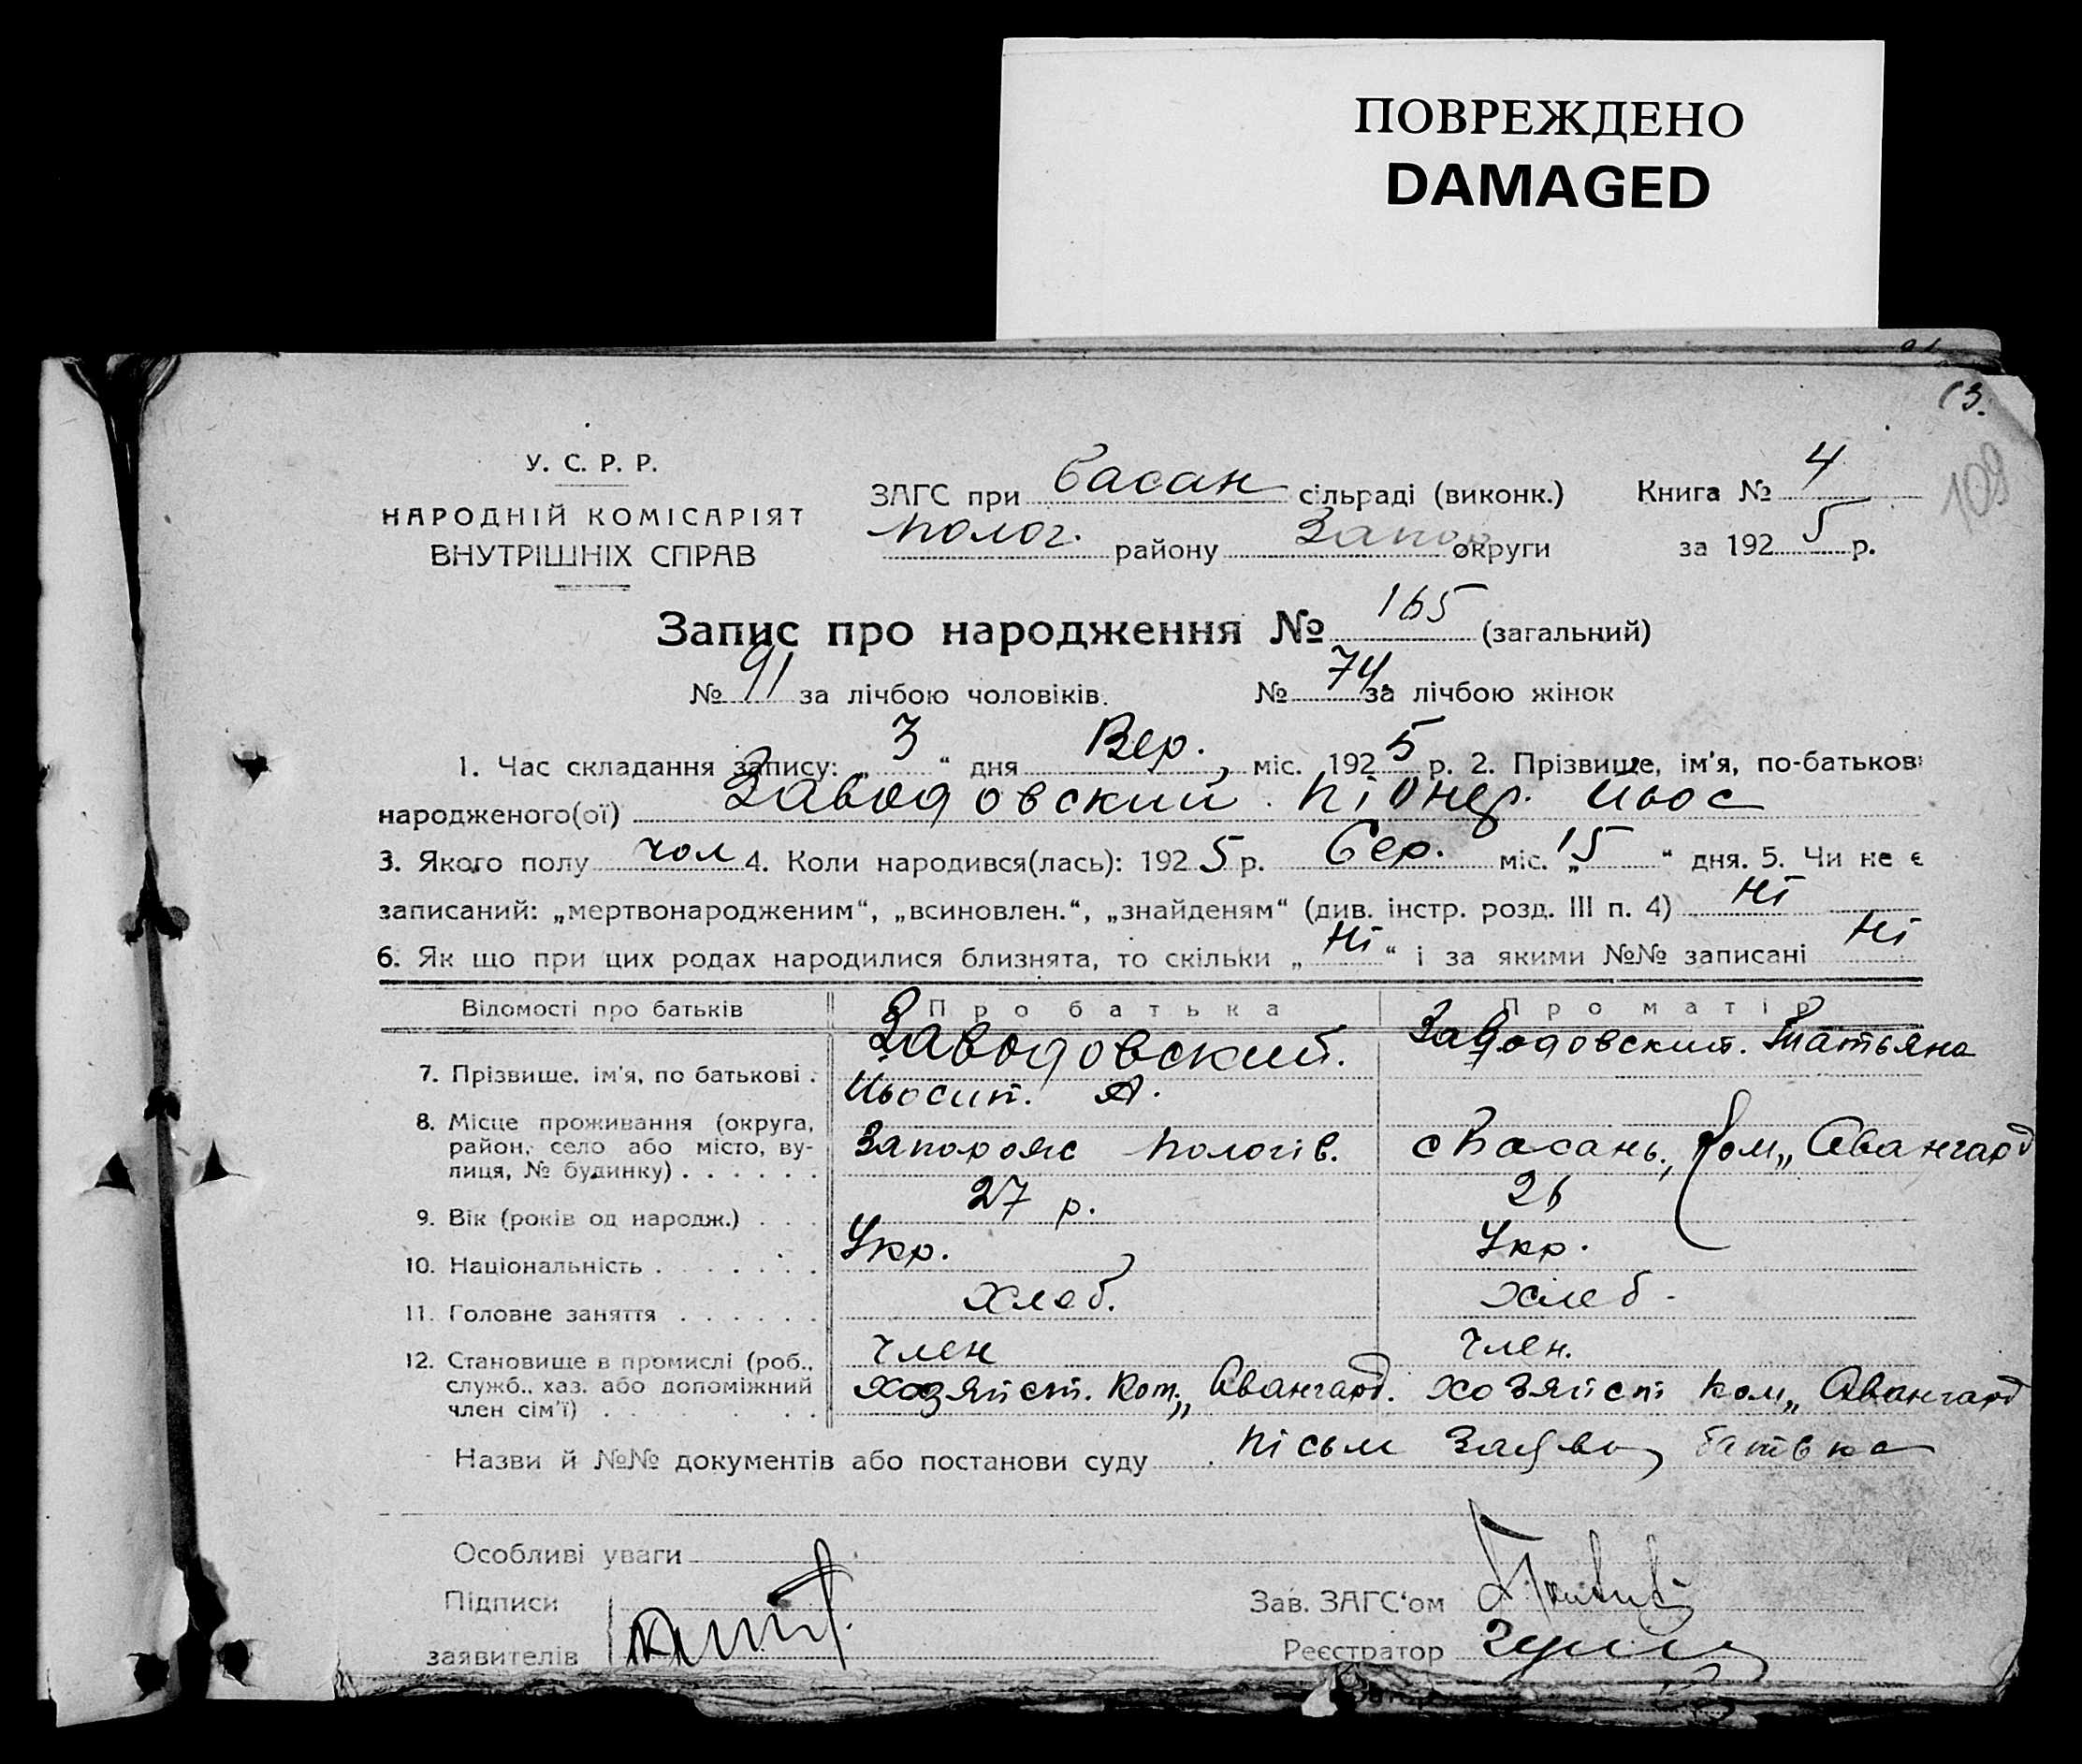 ПОВРЕЖДЕНО
DAMAGED
13.
109
У. С. Р. Р.
НАРОДНІЙ КОМІСАРІЯТ
ВНУТРІШНІХ СПРАВ
ЗАГС при Басан сільраді (виконк.) Книга № 4
Полог. району Запор округи за 1925 р.
Запис про народження № 165 (загальний)
№ 91 за лічбою чоловіків. № 74 за лічбою жінок
1. Час складання запису: „3“ дня Вер. міс. 1925 р. 2. Прізвище, ім'я, по-батькові
народженого(ої) Заводовский Піонер. Йьос
3. Якого полу чол 4. Коли народився(лась): 1925 р. Сер. міс. „15“ дня. 5. Чи не є
записаний: „мертвонародженим“, „всиновлен.“, „знайденям“ (див. інстр. розд. III п. 4) Ні
6. Як що при цих родах народилися близнята, то скільки „Ні“ і за якими №№ записані Ні
Відомості про батьків Про батька Про матір
7. Прізвище, ім'я, по батькові: Заводовский. Йьосип. А. Заводовский. Татьяна
8. Місце проживання (округа,
район, село або місто, ву-
лиця, № будинку) Запорож Пологів. с Басань, Ком„ Авангард
9. Вік (років од народж.) 27 р. 26
10. Національність Укр. Укр.
11. Головне заняття Хлеб. Хлеб.
12. Становище в промислі (роб.,
служб., хаз. або допоміжний
член сім'ї) Член Хозяйст. Ком„ Авангард. Член. Хозяйст Ком„ Авангард
Назви й №№ документів або постанови суду Пісьм Заява батька
Особливі уваги
Підписи Зав. ЗАГС'ом
заявителів Реєстратор